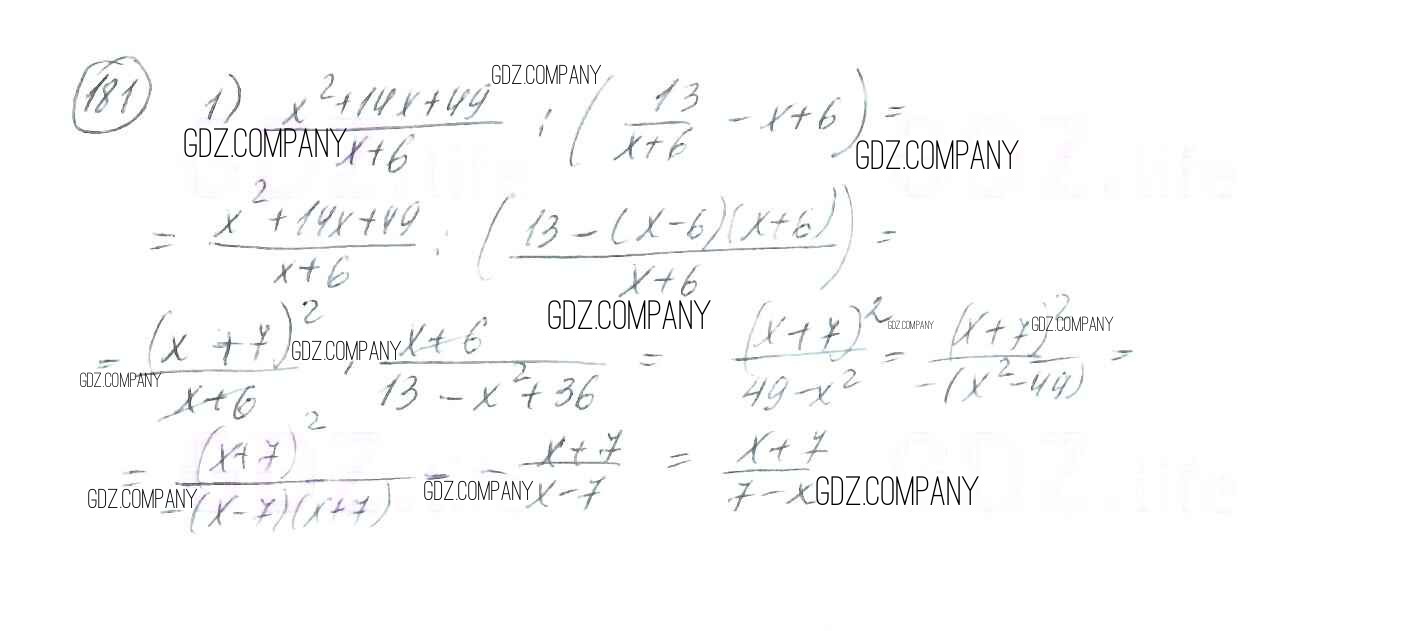 181 1) (x²+14x+49)/(x+6) : (13/(x+6) - x+6) =
= (x²+14x+49)/(x+6) : ((13-(x-6)(x+6))/(x+6)) =
= (x+7)²/(x+6) · (x+6)/(13-x²+36) = (x+7)²/(49-x²) = (x+7)²/(-(x²-49)) =
= (x+7)²/(-(x-7)(x+7)) = - (x+7)/(x-7) = (x+7)/(7-x)
GDZ.COMPANY
GDZ.COMPANY
GDZ.COMPANY
GDZ.COMPANY
GDZ.COMPANY
GDZ.COMPANY
GDZ.COMPANY
GDZ.COMPANY
GDZ.COMPANY
GDZ.COMPANY
GDZ.COMPANY
GDZ.life
GDZ.life
GDZ.life
GDZ.life